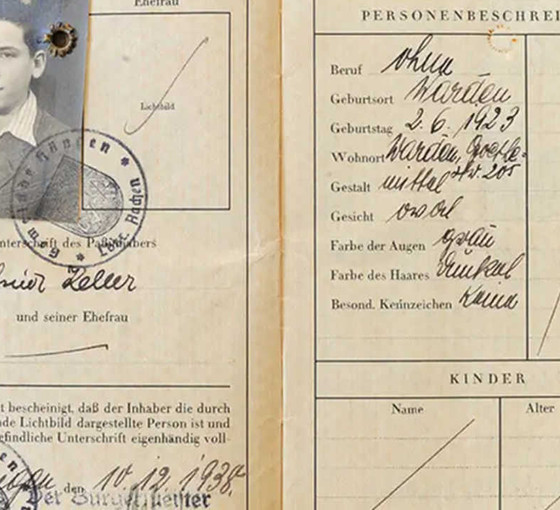 Ehefrau
Lichtbild
nterschrift des Paßinhabers
Zeller
und seiner Ehefrau
t bescheinigt, daß der Inhaber die durch
de Lichtbild dargestellte Person ist und
efindliche Unterschrift eigenhändig voll-
den 10.12.1938
Der Bürgermeister
PERSONENBESCHREI
Beruf ohne
Geburtsort Warden
Geburtstag 2. 6. 1923
Wohnort Warden, Goethe-
str. 205
Gestalt mittel
Gesicht oval
Farbe der Augen grau
Farbe des Haares dunkel
Besond. Kennzeichen Keine
KINDER
Name Alter